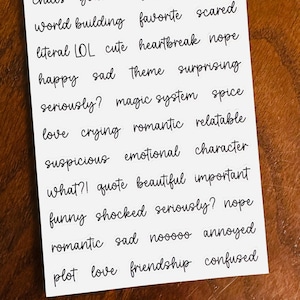 world building favorite scared
literal LOL cute heartbreak nope
happy sad theme surprising
seriously? magic system spice
love crying romantic relatable
suspicious emotional character
what?! quote beautiful important
funny shocked seriously? nope
romantic sad nooooo annoyed
plot love friendship confused